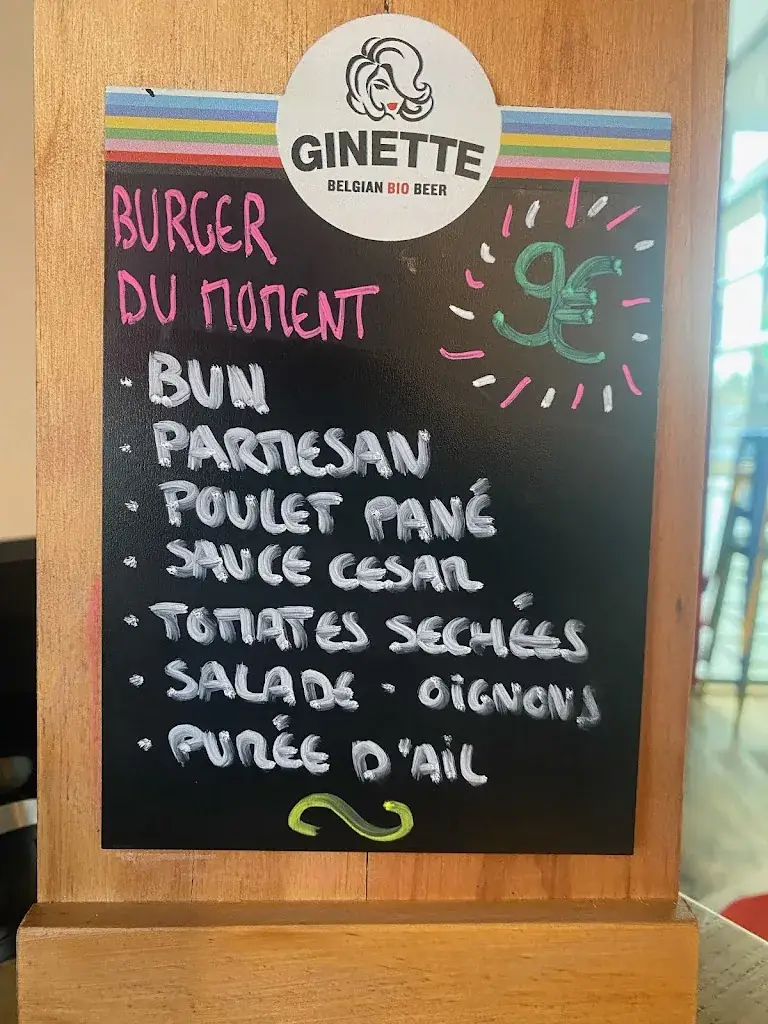 GINETTE
BELGIAN BIO BEER
BURGER
DU MOMENT
9€
• BUN
• PARMESAN
• POULET PANÉ
• SAUCE CESAR
• TOMATES SECHÉES
• SALADE • OiGNONS
• PURÉE D'AiL